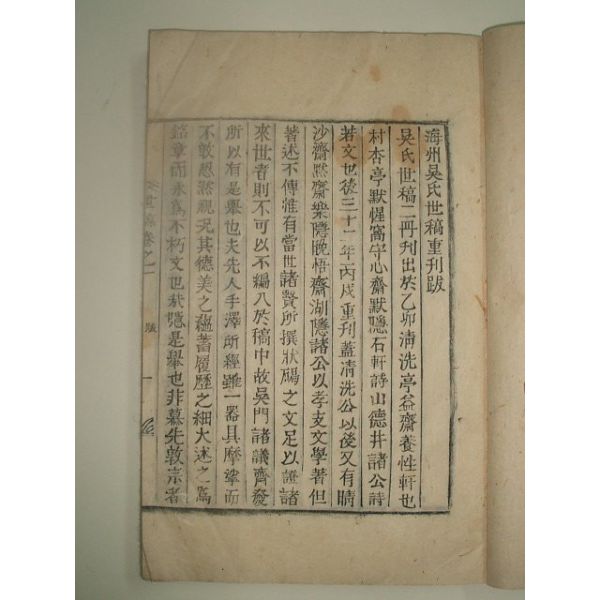 海州吳氏世稿重刊跋
吳氏世稿二冊刊出於乙卯淸洗亭益齋養性軒也
村杏亭默惺窩守心齋默隱石軒詩山德井諸公詩
若文也後三十二年丙戌重刊蓋淸洗公以後又有晴
沙齋默齋樂隱晩悟齋湖隱諸公以孝友文學著但
著述不傳惟有當世諸賢所撰狀碣之文足以證諸
來世者則不可以不編入於稿中故吳門諸議齊發
所以有是擧也夫先人手澤所經雖一器具摩挲而
不敢忽然況其德美之蘊蓄履歷之細大述之爲
銘章而永爲不朽文也哉隱是擧也非慕先敦宗者
世稿卷之二
跋